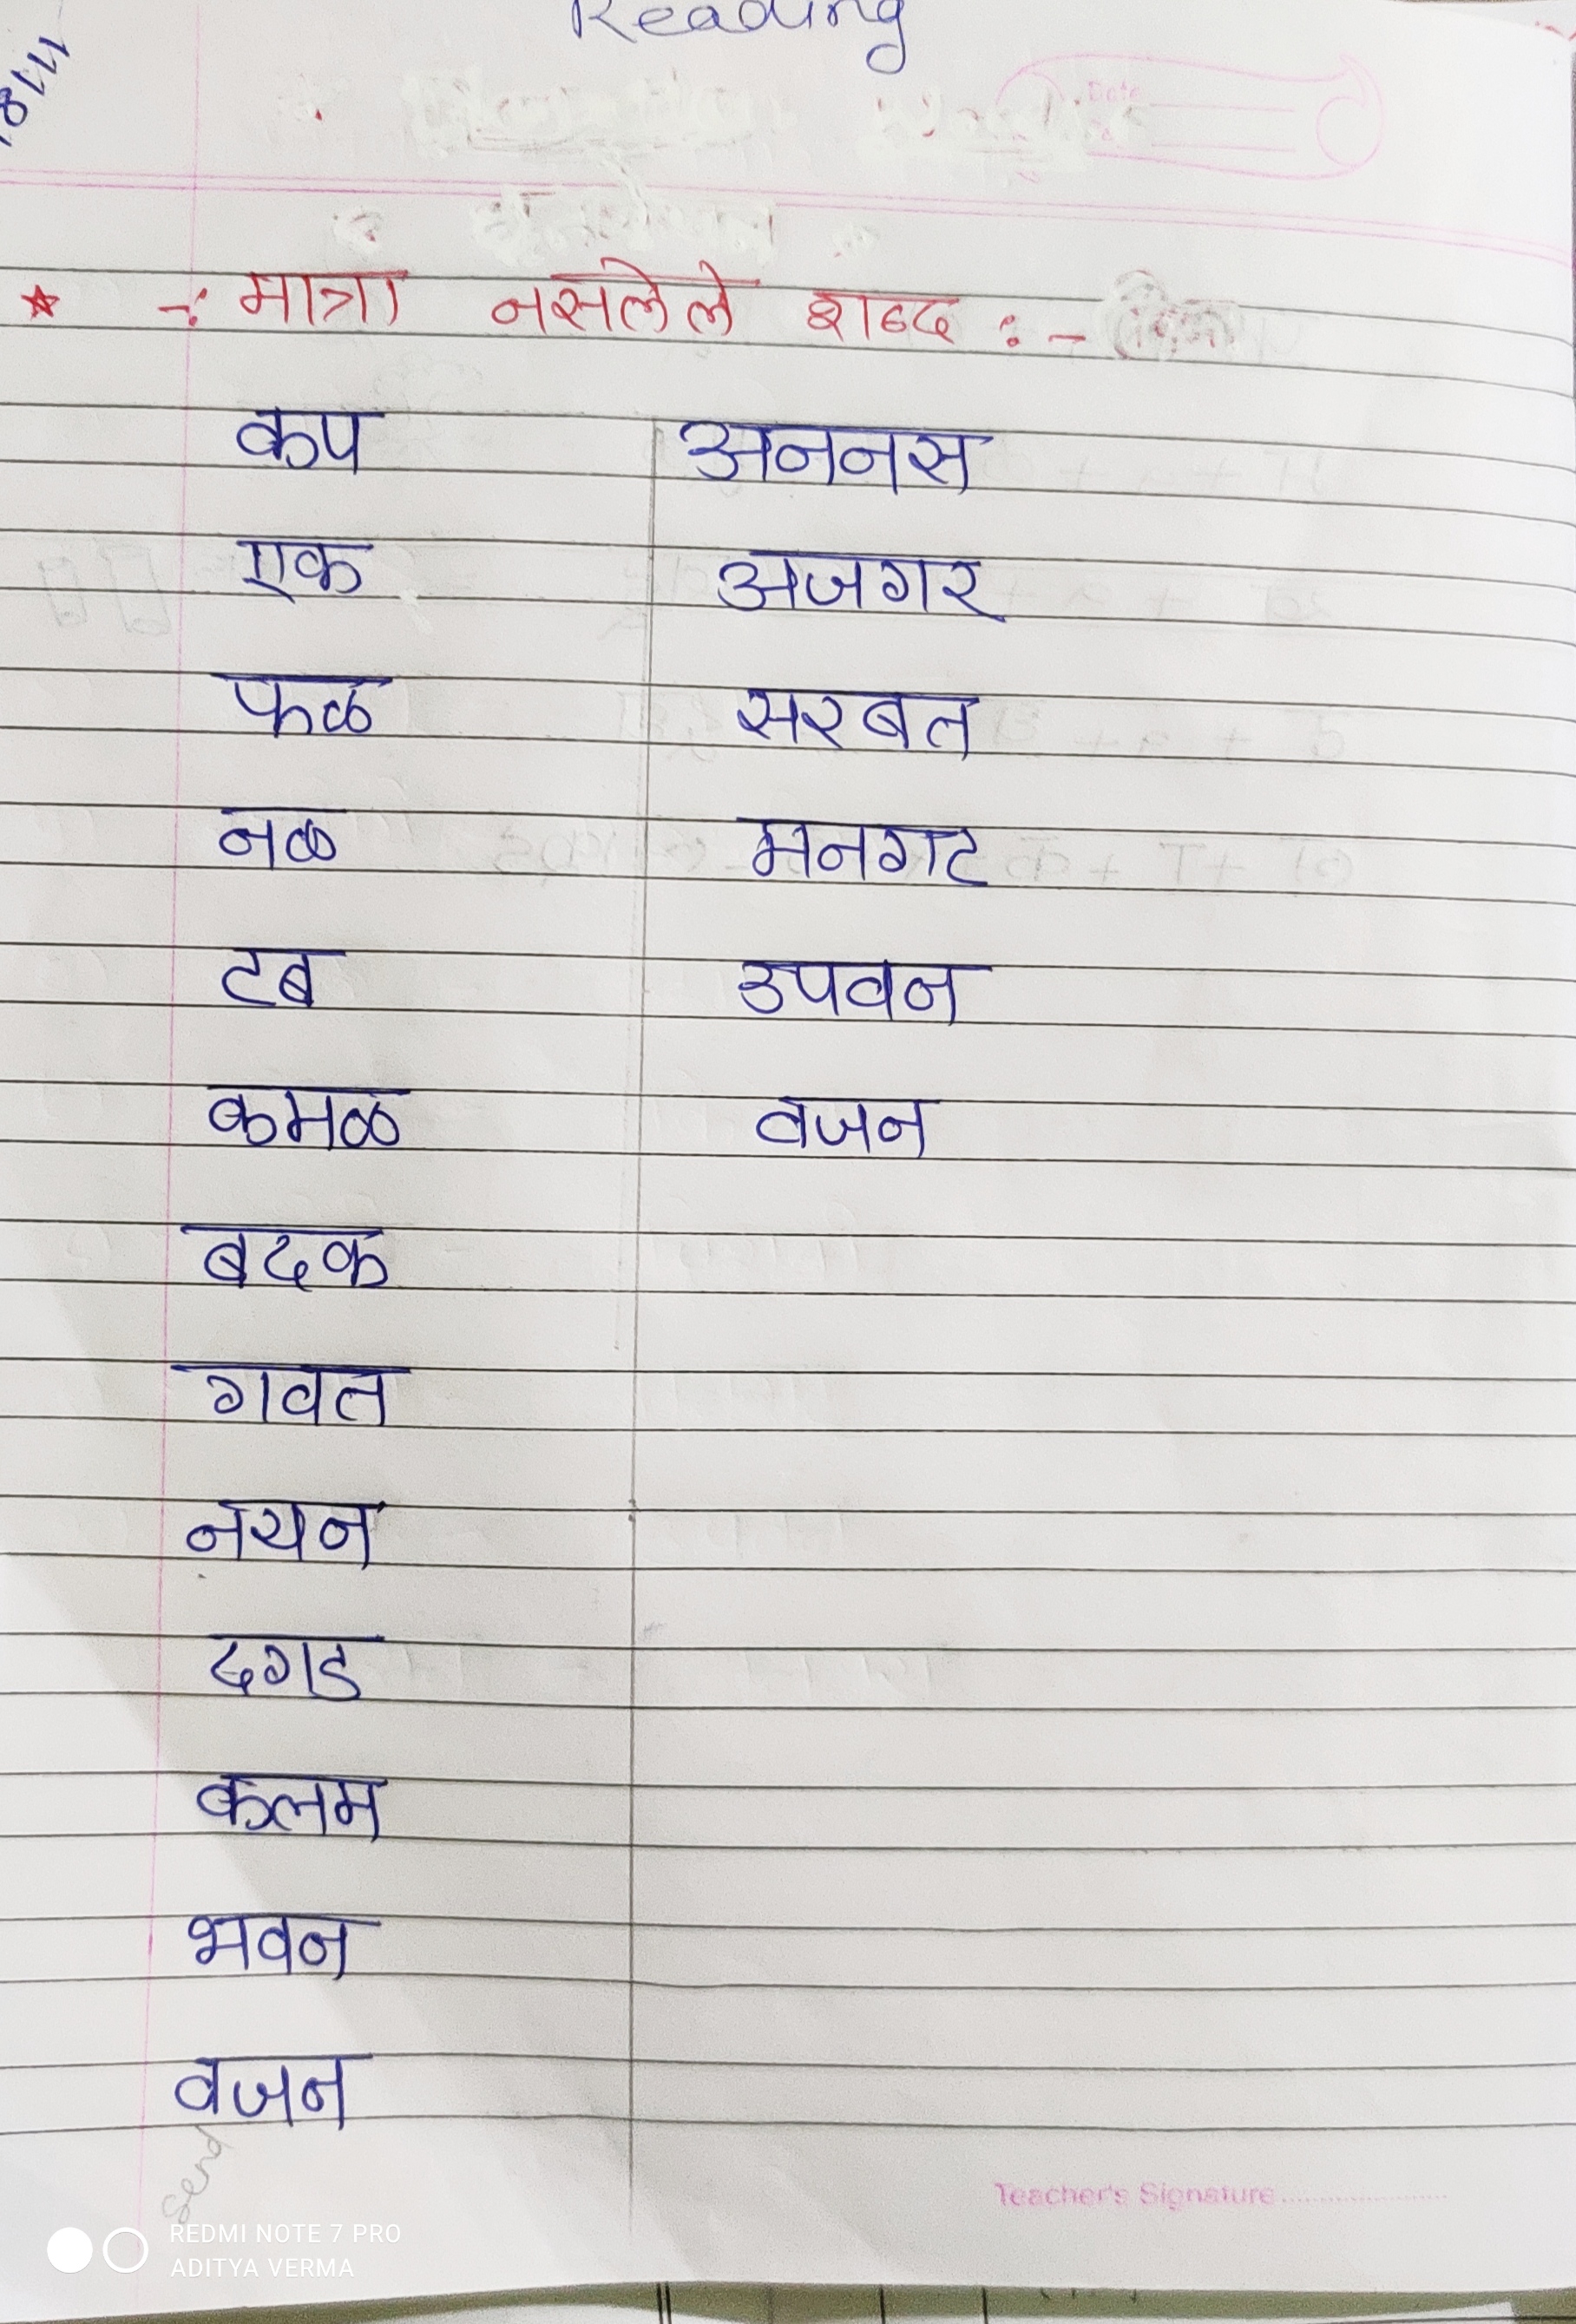 Reading
★ -: मात्रा नसलेले शब्द :-
कप
एक
फळ
नळ
टब
कमळ
बदक
गवत
नयन
दगड
कलम
भवन
वजन
अननस
अजगर
सरबत
मनगट
उपवन
वजन
Send
Teacher's Signature
REDMI NOTE 7 PRO
ADITYA VERMA